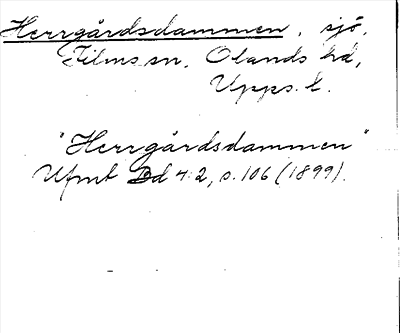 Herrgårdsdammen, sjö,
Films sn, Olands hd,
Upps. l.
"Herrgårdsdammen"
Ufmt Bd 4:2, s. 106 (1899).